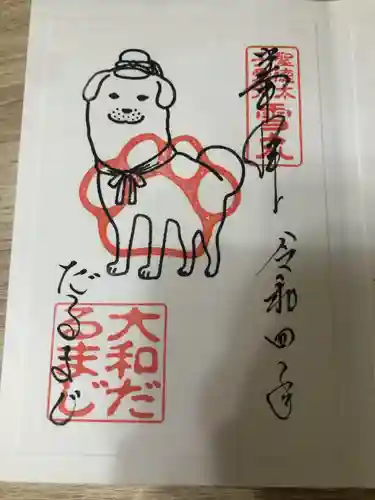 聖徳太
雪丸
奉拝
令和四年
だるまじ
大和だ
るまじ